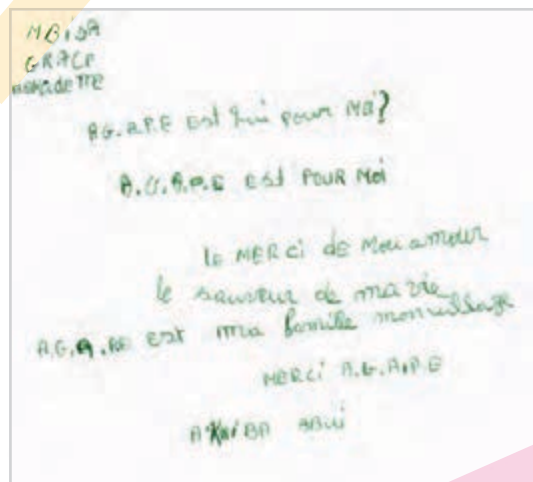 MBIDA
GRACE
BERNADETTE
AG.A.P.E est qui pour Moi?
A.G.A.P.E Est POUR Moi
le MERCi de Mon amour
le sauveur de ma vie
A.G.A.PE est ma famille mon village
MERCi A.G.A.P.E
AKiBA